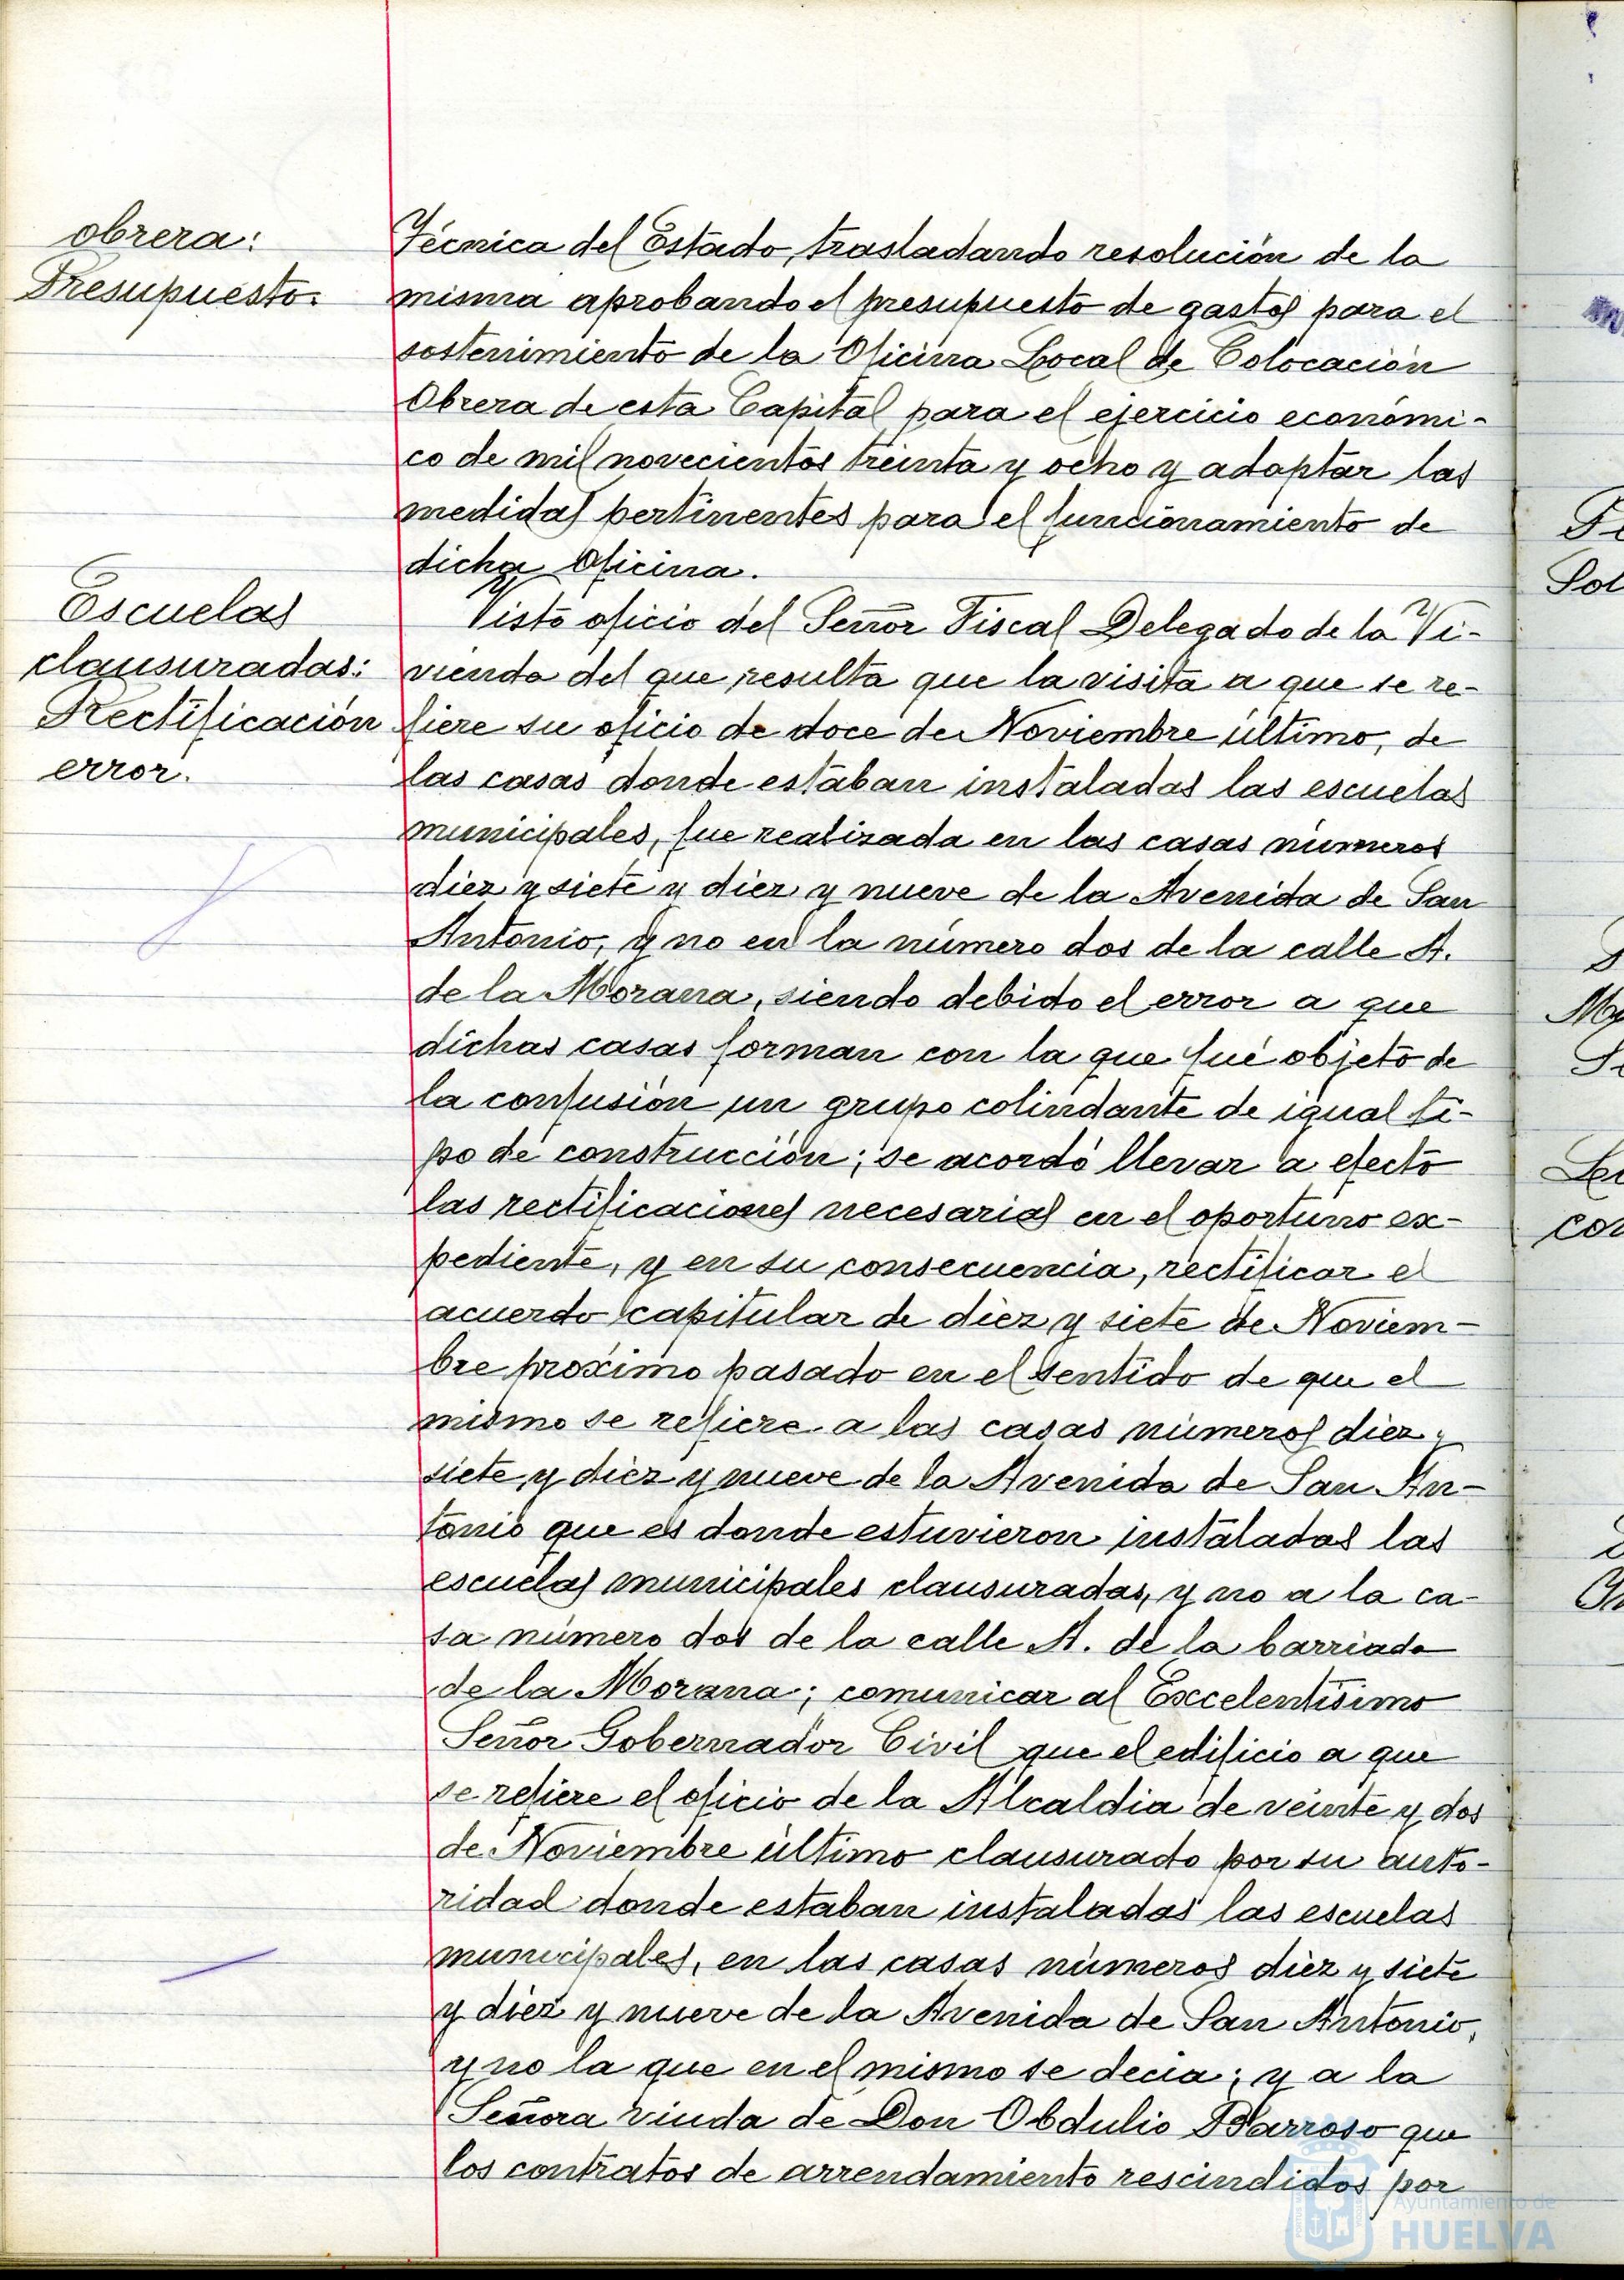 obrera:
Presupuesto.
Técnica del Estado, trasladando resolución de la
misma aprobando el presupuesto de gastos para el
sostenimiento de la Oficina Local de Colocación
Obrera de esta Capital para el ejercicio económi-
co de mil novecientos treinta y ocho y adoptar las
medidas pertinentes para el funcionamiento de
dicha Oficina.
Escuelas
clausuradas:
Rectificación
error.
Visto oficio del Señor Fiscal Delegado de la Vi-
vienda del que resulta que la visita a que se re-
fiere su oficio de doce de Noviembre último, de
las casas donde estaban instaladas las escuelas
municipales, fue realizada en las casas números
diez y siete y diez y nueve de la Avenida de San
Antonio, y no en la número dos de la calle A.
de la Morana, siendo debido el error a que
dichas casas forman con la que fué objeto de
la confusión un grupo colindante de igual ti-
po de construcción; se acordó llevar a efecto
las rectificaciones necesarias en el oportuno ex-
pediente, y en su consecuencia, rectificar el
acuerdo capitular de diez y siete de Noviem-
bre próximo pasado en el sentido de que el
mismo se refiere a las casas números diez y
siete y diez y nueve de la Avenida de San An-
tonio que es donde estuvieron instaladas las
escuelas municipales clausuradas, y no a la ca-
sa número dos de la calle A. de la barriada
de la Morana; comunicar al Excelentísimo
Señor Gobernador Civil que el edificio a que
se refiere el oficio de la Alcaldia de veinte y dos
de Noviembre último clausurado por su auto-
ridad donde estaban instaladas las escuelas
municipales, en las casas números diez y siete
y diez y nueve de la Avenida de San Antonio,
y no la que en el mismo se decia; y a la
Señora viuda de Don Obdulio Barroso que
los contratos de arrendamiento rescindidos por
Ayuntamiento de
HUELVA